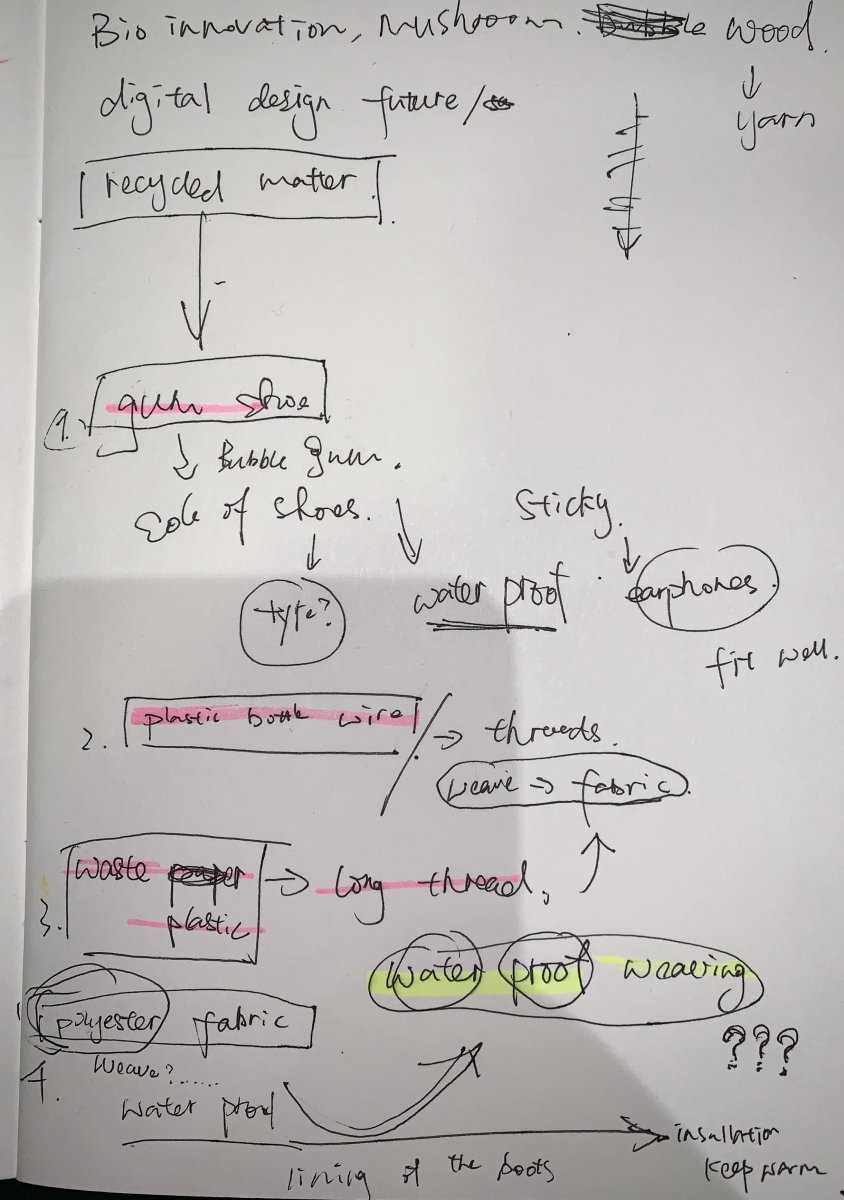 Bio innovation, Mushroom. wood.
yarn
digital design future/
recycled matter.
1. gum shoe
Bubble gum.
Sole of shoes.
Sticky.
type?
water proof
earphones.
fit well.
2. plastic bottle wire / → threads.
weave → fabric.
3. waste → long thread,
plastic
water proof wearing
polyester fabric
???
4. weave?......
water proof
insallation
lining of the boots
keep warm